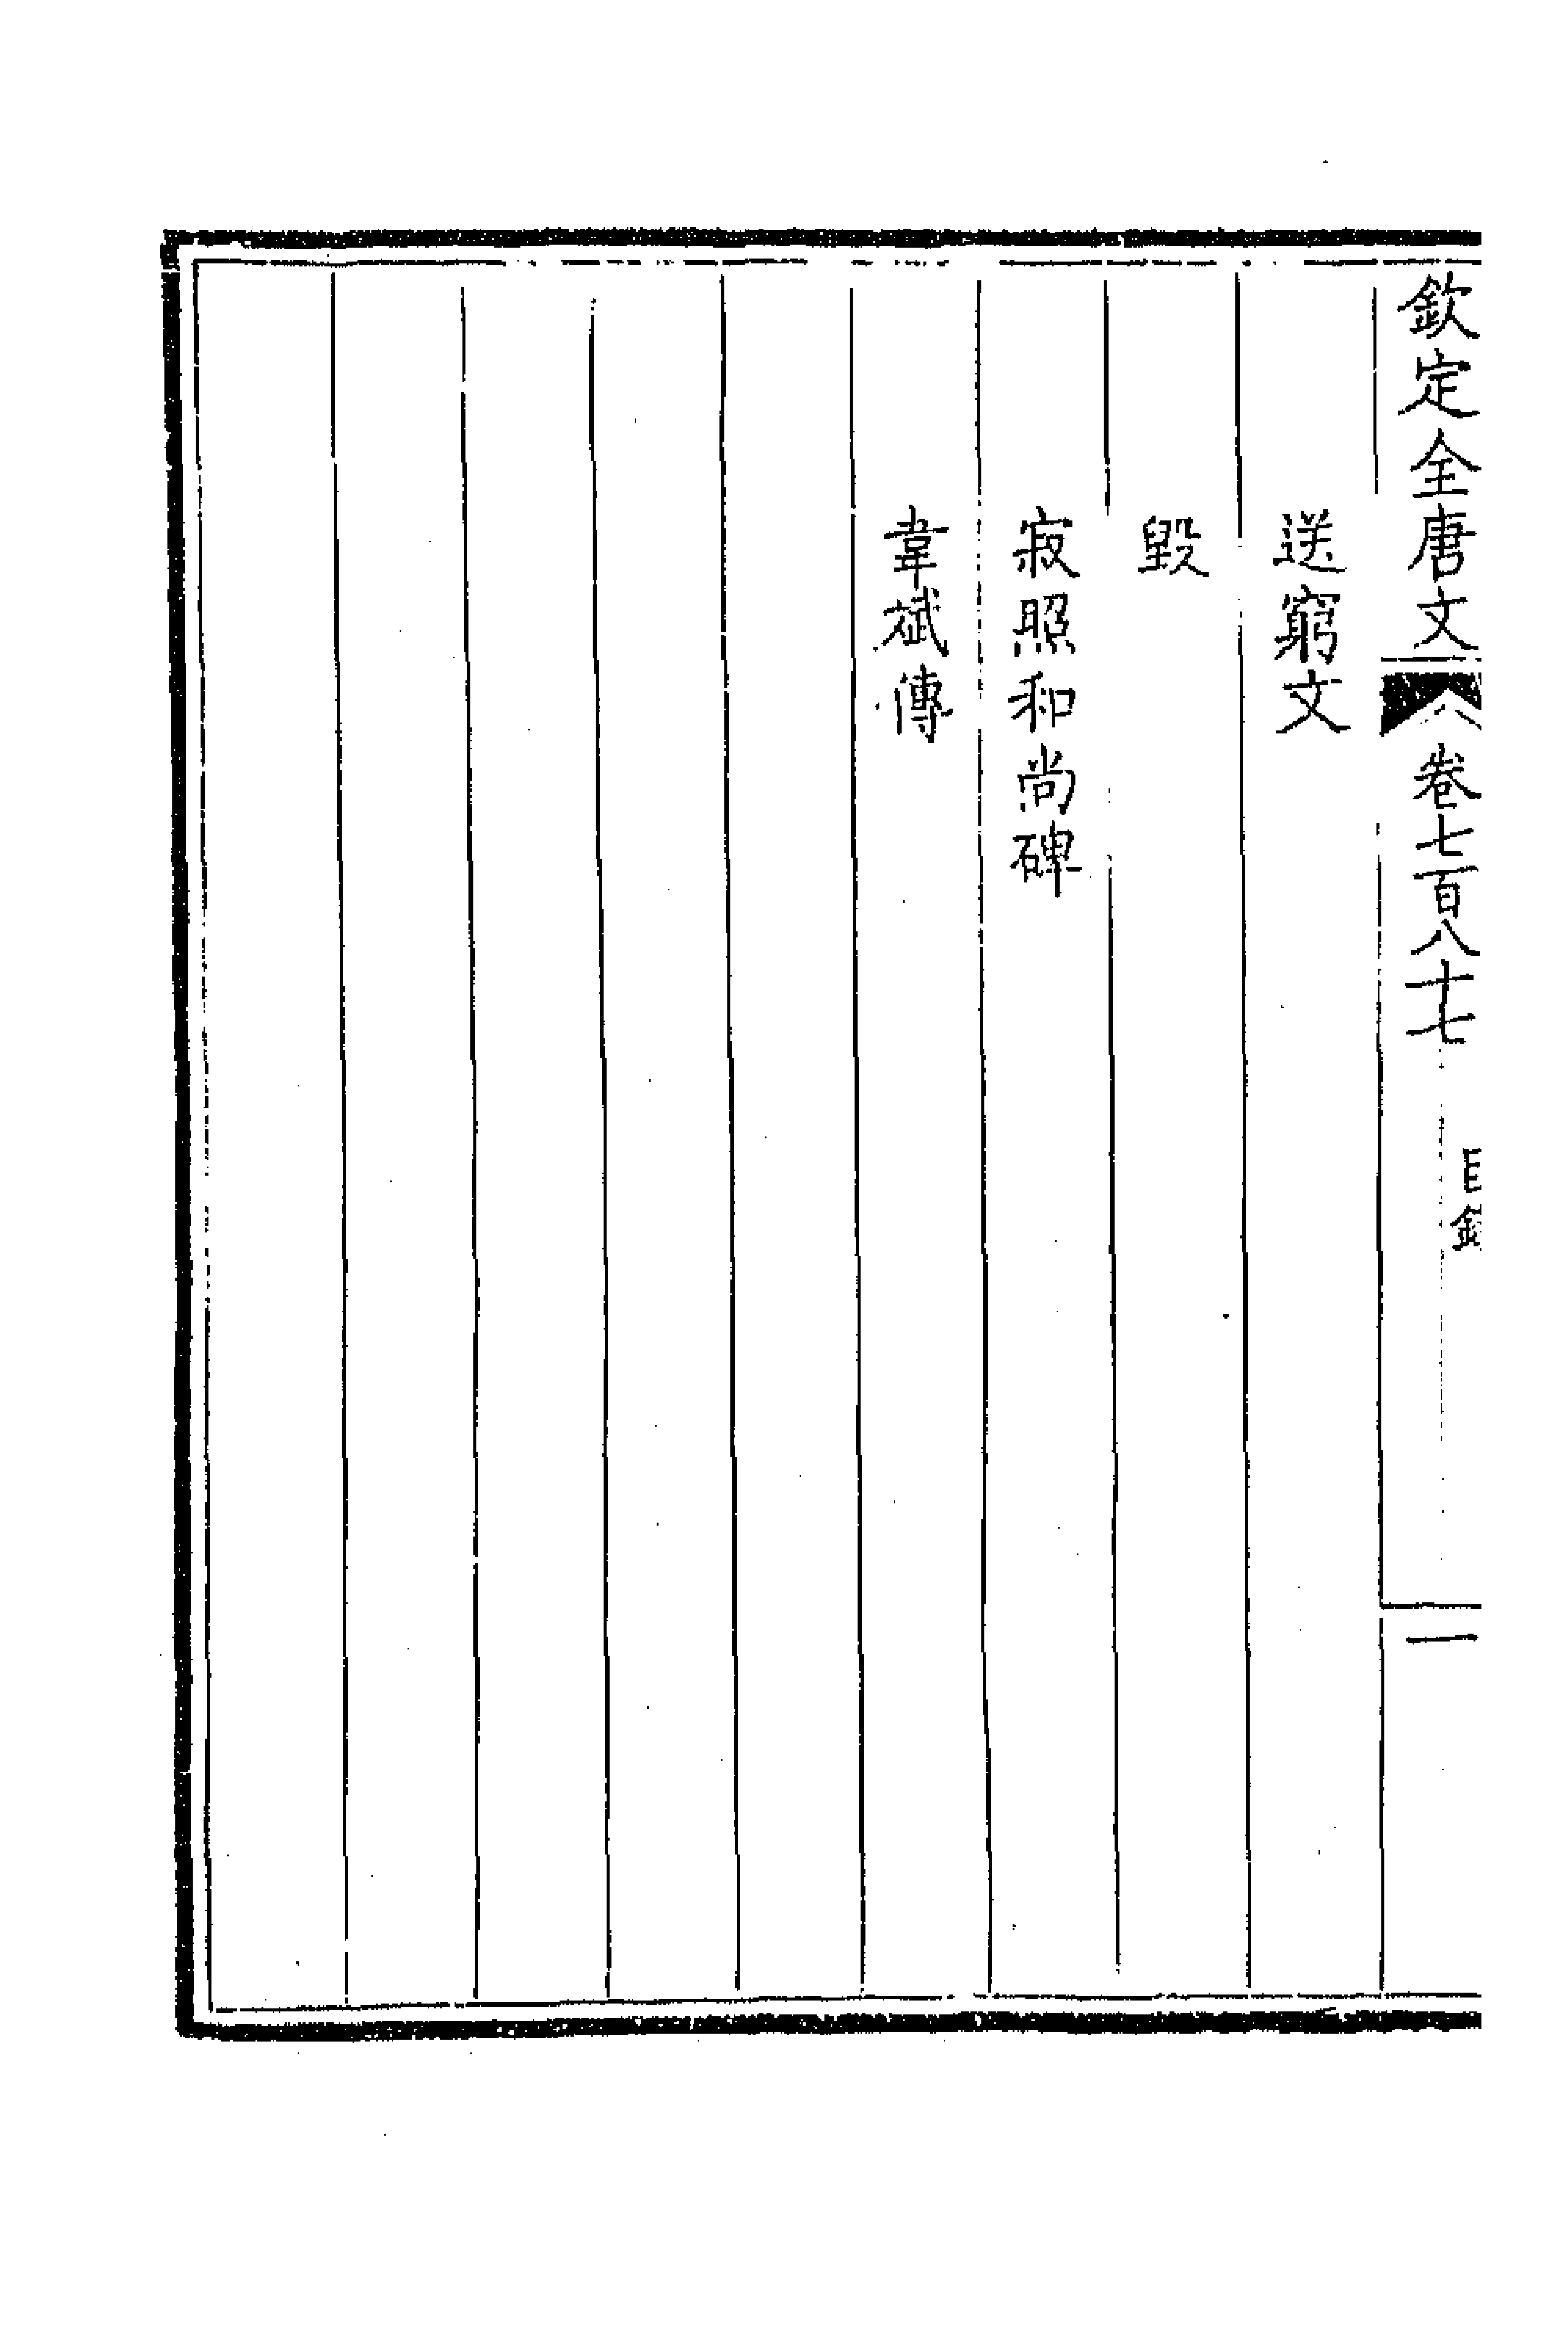 欽定全唐文 卷七百八十七 目錄 一
送窮文
毀
寂照和尚碑
韋斌傳